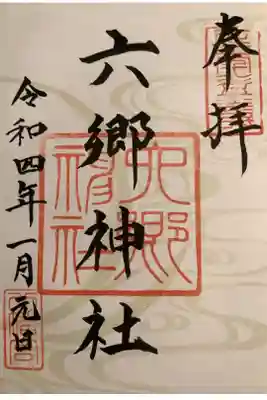 奉拝
六郷神社
令和四年一月元日
六郷神社